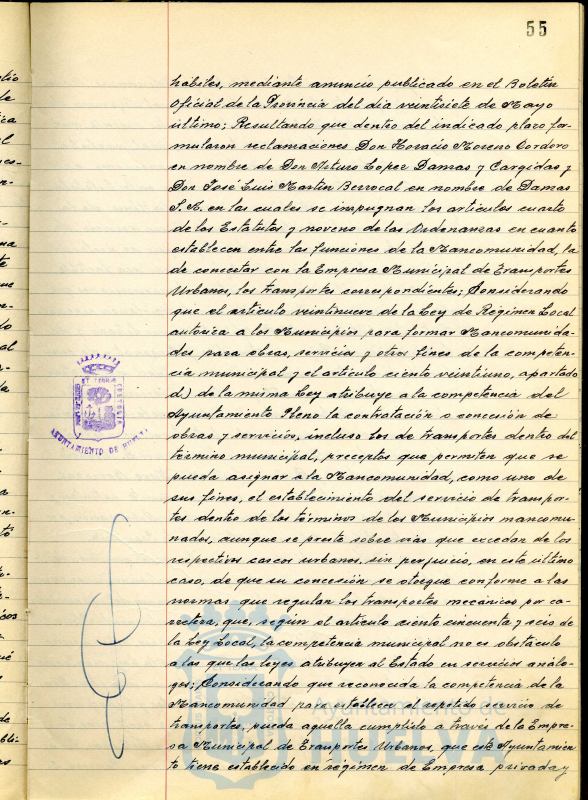 55
hábiles, mediante anuncio publicado en el Boletín
Oficial de la Provincia del dia veintisiete de Mayo
último; Resultando que dentro del indicado plazo for-
mularon reclamaciones Don Horacio Moreno Cordero
en nombre de Don Arturo Lopez Damas y
Don José Luis Martin Berrocal en nombre de Damas
S. A. en las cuales se impugnan los articulos cuarto
de los Estatutos y noveno de las Ordenanzas en cuanto
establecen entre las funciones de la Mancomunidad, la
de concertar con la Empresa Municipal de Transportes
Urbanos, los transportes correspondientes; Considerando
que el artículo veintinueve de la Ley de Régimen Local
autoriza a los Municipios para formar Mancomunida-
des para obras, servicios y otros fines de la competen-
cia municipal y el artículo ciento veintiuno, apartado
d) de la misma Ley atribuye a la competencia del
Ayuntamiento Pleno la contratación o concesión de
obras y servicios, incluso los de transportes dentro del
término municipal, preceptos que permiten que se
pueda asignar a la Mancomunidad, como uno de
sus fines, el establecimiento del servicio de transpor-
tes dentro de los términos de los Municipios mancomu-
nados, aunque se preste sobre vías que excedan de los
respectivos cascos urbanos, sin perjuicio, en este último
caso, de que su concesión se otorgue conforme a las
normas que regulan los transportes mecánicos por ca-
rretera, que, según el artículo ciento cincuenta y seis de
la Ley Local, la competencia municipal no es obstáculo
a las que las leyes atribuyen al Estado en servicios análo-
gos; Considerando que reconocida la competencia de la
Mancomunidad para establecer el repetido servicio de
transportes, pueda aquella cumplirlo a través de la Empre-
sa Municipal de Transportes Urbanos, que este Ayuntamien-
to tiene establecido en régimen de Empresa privada y
AYUNTAMIENTO DE HUELVA
Ayuntamiento de
HUELVA